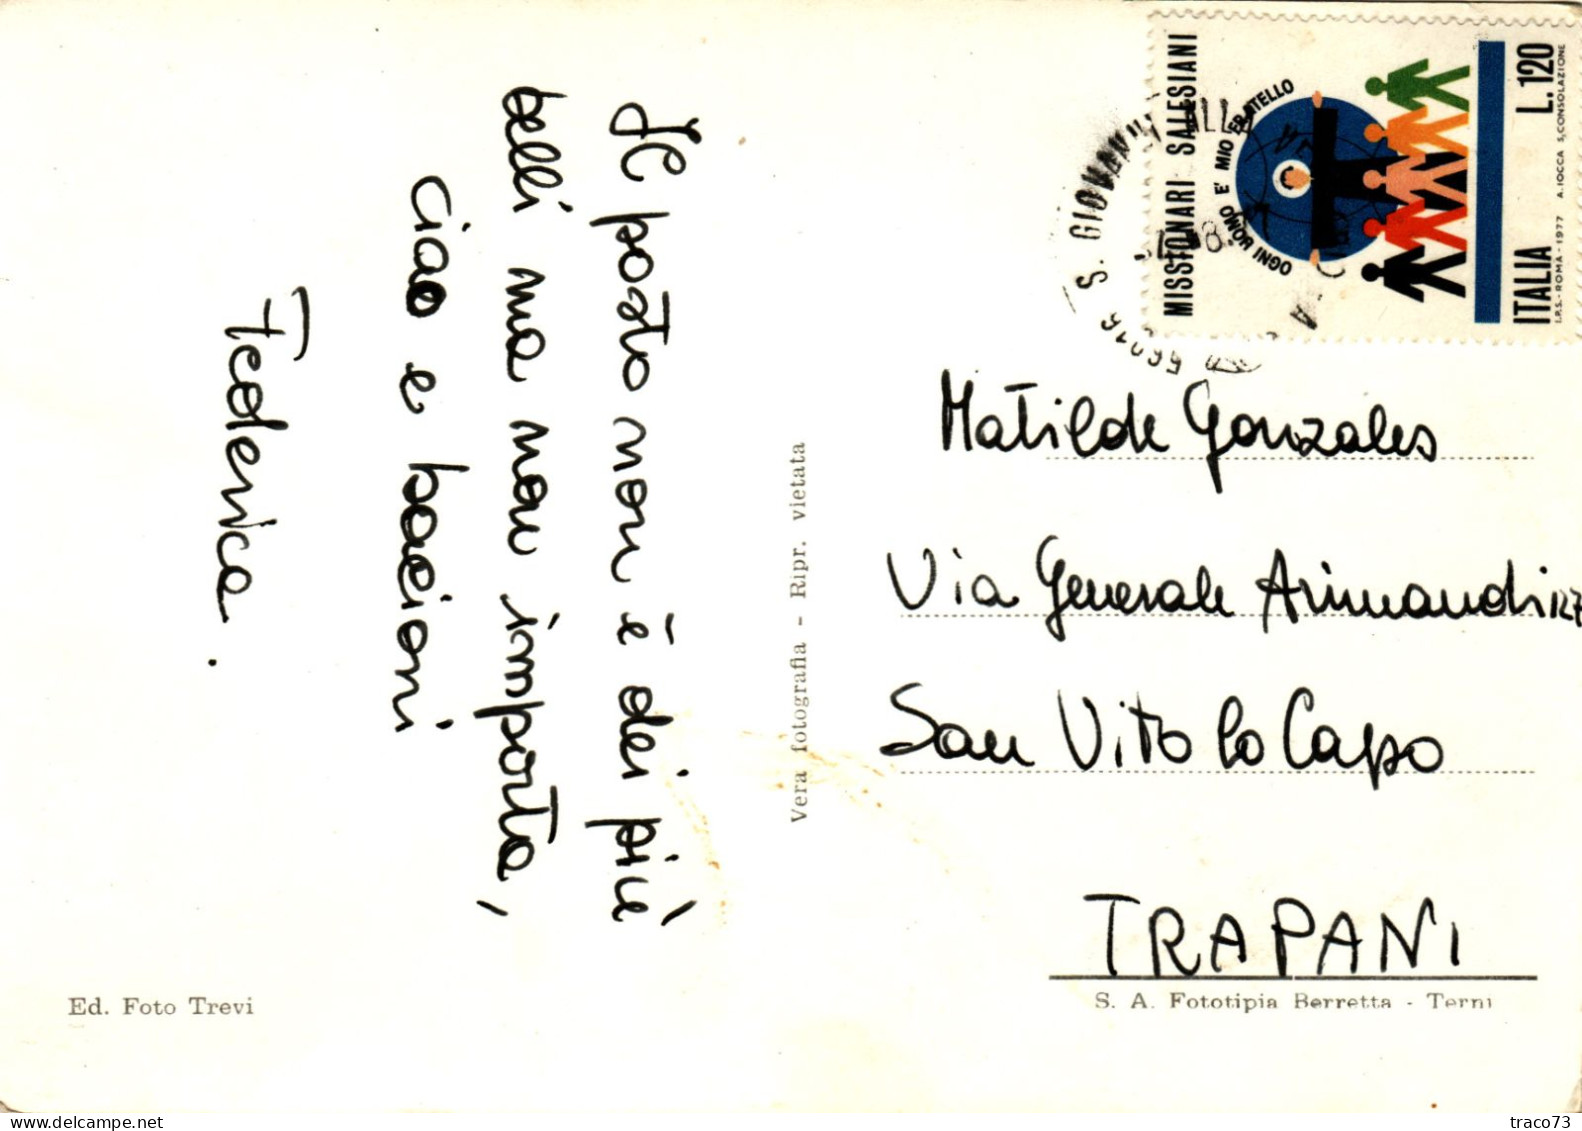 Il posto non è dei più
belli ma non importa,
ciao e bacioni
Federica.
Ed. Foto Trevi
Vera fotografia - Ripr. vietata
MISSIONARI SALESIANI
OGNI UOMO E' MIO FRATELLO
ITALIA L.120
I.P.S.-ROMA-1977 A. IOCCA S. CONSOLAZIONE
56016 S. GIOVANNI ALLA
Matilde Gonzales
Via Generale Arimondi 127
San Vito lo Capo
TRAPANI
S. A. Fototipia Berretta - Terni
traco73